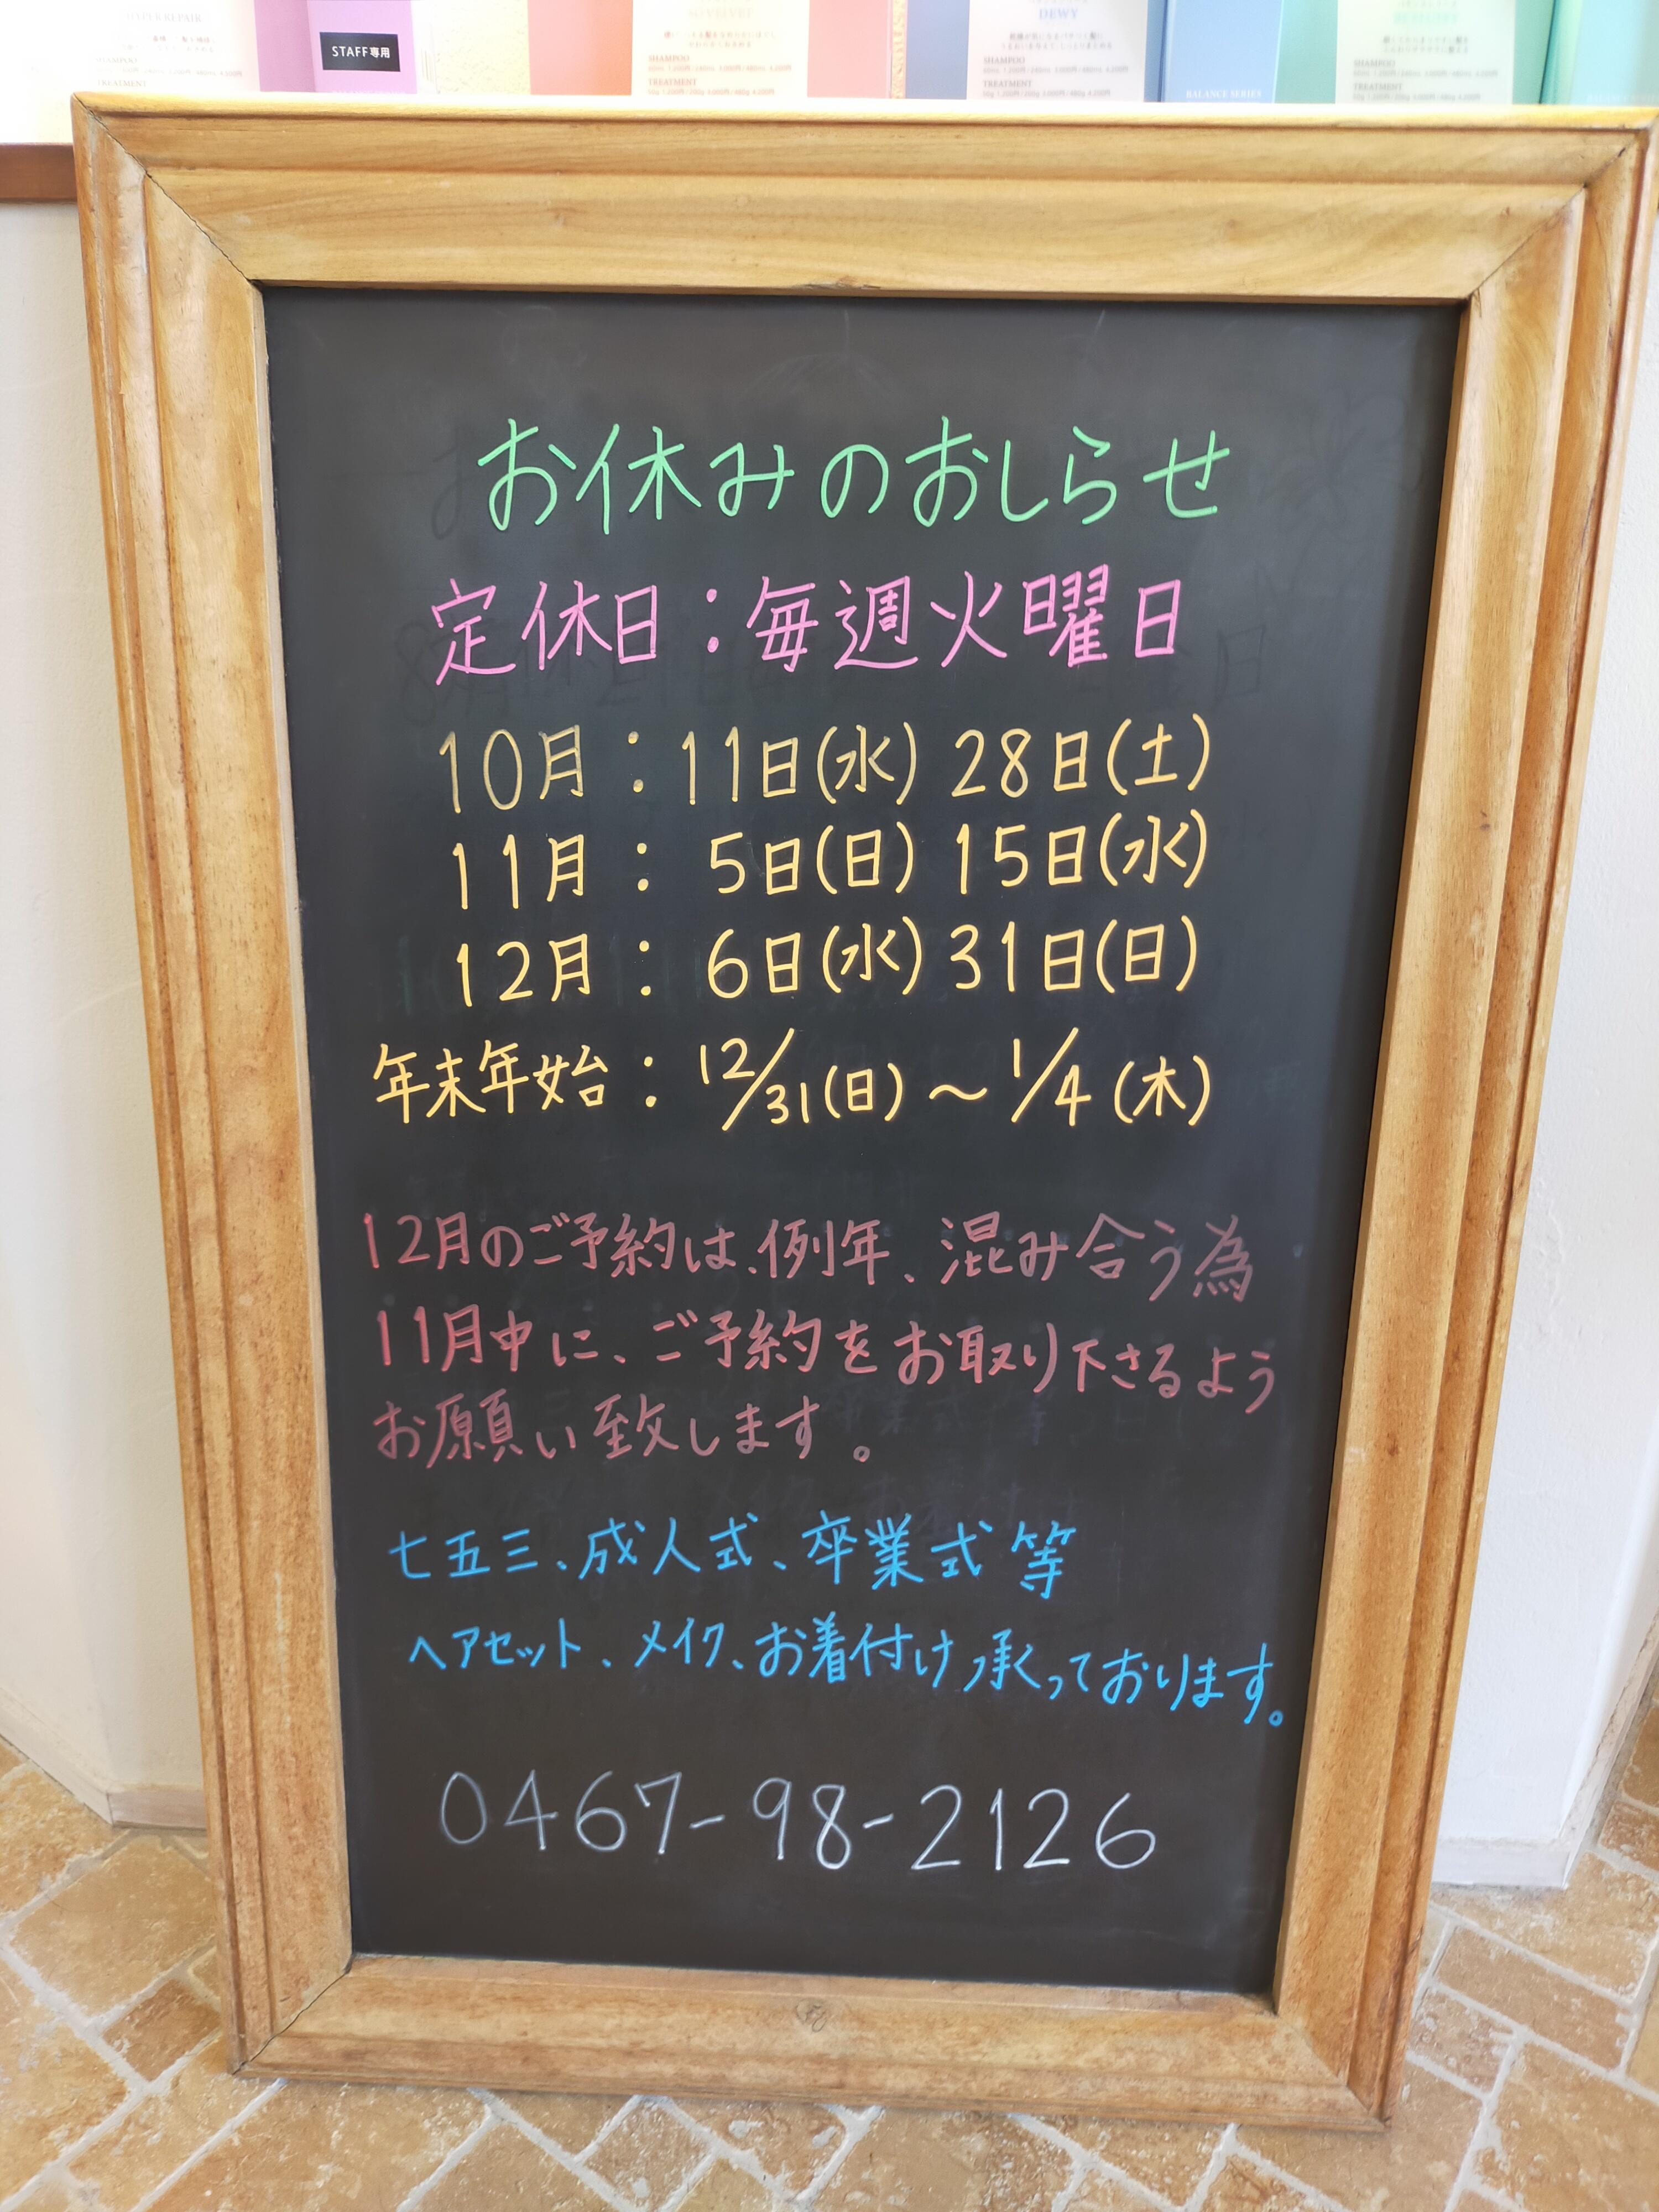 STAFF専用
DEWY
SHAMPOO
TREATMENT
SHAMPOO
TREATMENT
SHAMPOO
TREATMENT
SHAMPOO
TREATMENT
BALANCE SERIES
お休みのおしらせ
定休日：毎週火曜日
10月：11日(水) 28日(土)
11月： 5日(日) 15日(水)
12月： 6日(水) 31日(日)
年末年始：12/31(日)～1/4(木)
12月のご予約は、例年、混み合う為
11月中に、ご予約をお取り下さるよう
お願い致します。
七五三、成人式、卒業式等
ヘアセット、メイク、お着付け承っております。
0467-98-2126